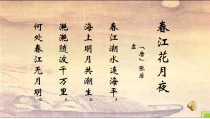 春江花月夜
「唐」张若
虚
春江潮水连海平,
海上明月共潮生。
滟滟随波千万里,
何处春江无月明。